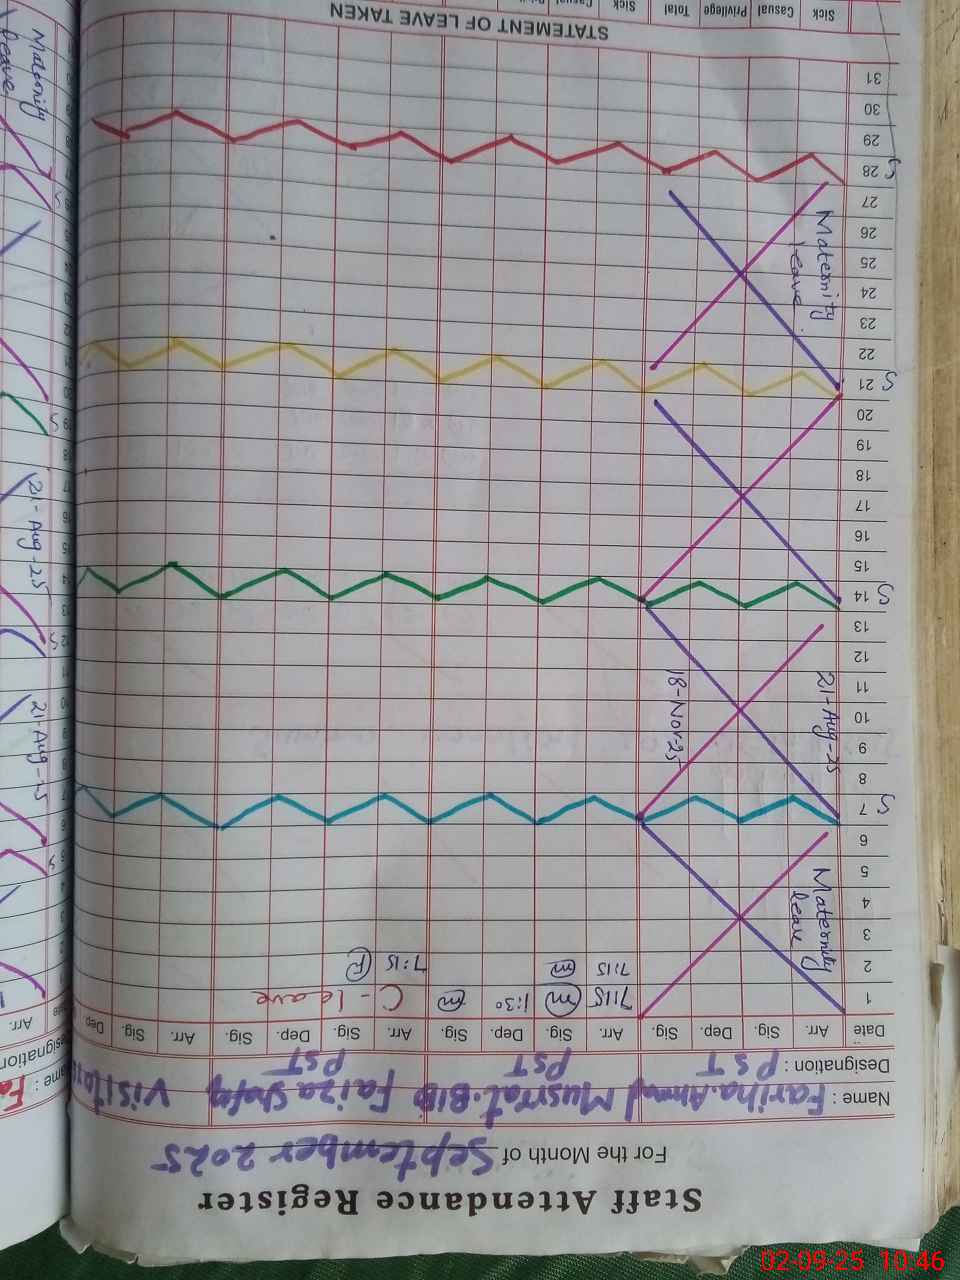 Staff Attendance Register
For the Month of September 2025
Name : Fariha Ahmed Musrrat Bibi Faiza Shafiq
Designation : PST PST PST
Date Arr. Sig. Dep. Sig. Arr. Sig. Dep. Sig. Arr. Sig. Dep. Sig. Arr. Sig. Dep.
1 7:15 m 1:30 m C-leave
2 7:15 m 7:15 F
3
4 Maternity leave
5
6
7 S
8
9
10 21-Aug-25 18-Nov-25
11
12
13
14 S
15
16
17
18
19
20
21 S
22
23
24
25 Maternity leave
26
27
28 S
29
30
31
STATEMENT OF LEAVE TAKEN
Sick Casual Privilege Total Sick Casual
Name :
Designation
Arr.
21-Aug-25
21-Aug-25
Maternity leave
02-09-25 10:46